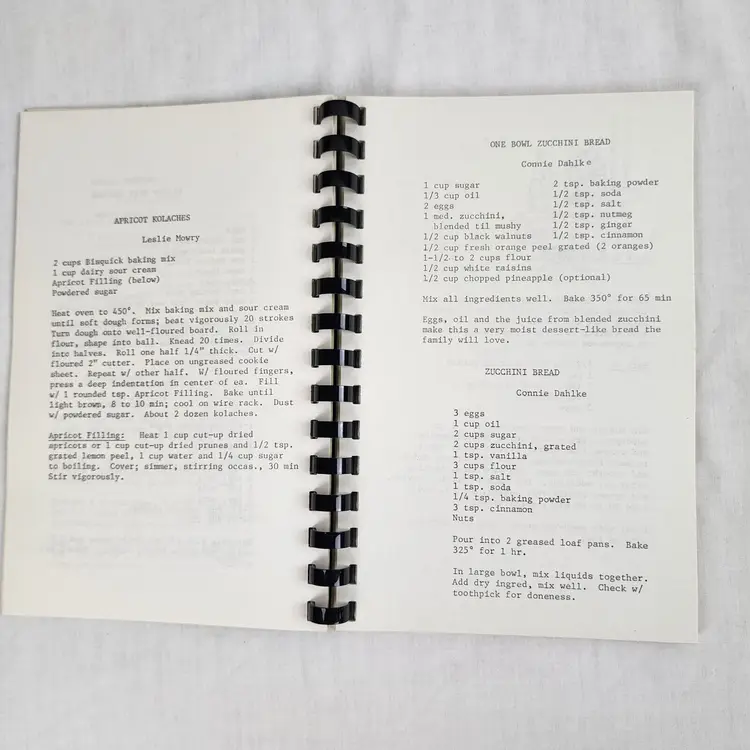 APRICOT KOLACHES
Leslie Mowry
2 cups Bisquick baking mix
1 cup dairy sour cream
Apricot Filling (below)
Powdered sugar
Heat oven to 450°. Mix baking mix and sour cream
until soft dough forms; beat vigorously 20 strokes
Turn dough onto well-floured board. Roll in
flour, shape into ball. Knead 20 times. Divide
into halves. Roll one half 1/4" thick. Cut w/
floured 2" cutter. Place on ungreased cookie
sheet. Repeat w/ other half. W/ floured fingers,
press a deep indentation in center of ea. Fill
w/ 1 rounded tsp. Apricot Filling. Bake until
light brown, 8 to 10 min; cool on wire rack. Dust
w/ powdered sugar. About 2 dozen kolaches.
Apricot Filling: Heat 1 cup cut-up dried
apricots or 1 cup cut-up dried prunes and 1/2 tsp.
grated lemon peel, 1 cup water and 1/4 cup sugar
to boiling. Cover; simmer, stirring occas., 30 min
Stir vigorously.
ONE BOWL ZUCCHINI BREAD
Connie Dahlke
1 cup sugar
1/3 cup oil
2 eggs
1 med. zucchini,
blended til mushy
1/2 cup black walnuts
2 tsp. baking powder
1/2 tsp. soda
1/2 tsp. salt
1/2 tsp. nutmeg
1/2 tsp. ginger
1/2 tsp. cinnamon
1/2 cup fresh orange peel grated (2 oranges)
1-1/2 to 2 cups flour
1/2 cup white raisins
1/2 cup chopped pineapple (optional)
Mix all ingredients well. Bake 350° for 65 min
Eggs, oil and the juice from blended zucchini
make this a very moist dessert-like bread the
family will love.
ZUCCHINI BREAD
Connie Dahlke
3 eggs
1 cup oil
2 cups sugar
2 cups zucchini, grated
1 tsp. vanilla
3 cups flour
1 tsp. salt
1 tsp. soda
1/4 tsp. baking powder
3 tsp. cinnamon
Nuts
Pour into 2 greased loaf pans. Bake
325° for 1 hr.
In large bowl, mix liquids together.
Add dry ingred, mix well. Check w/
toothpick for doneness.